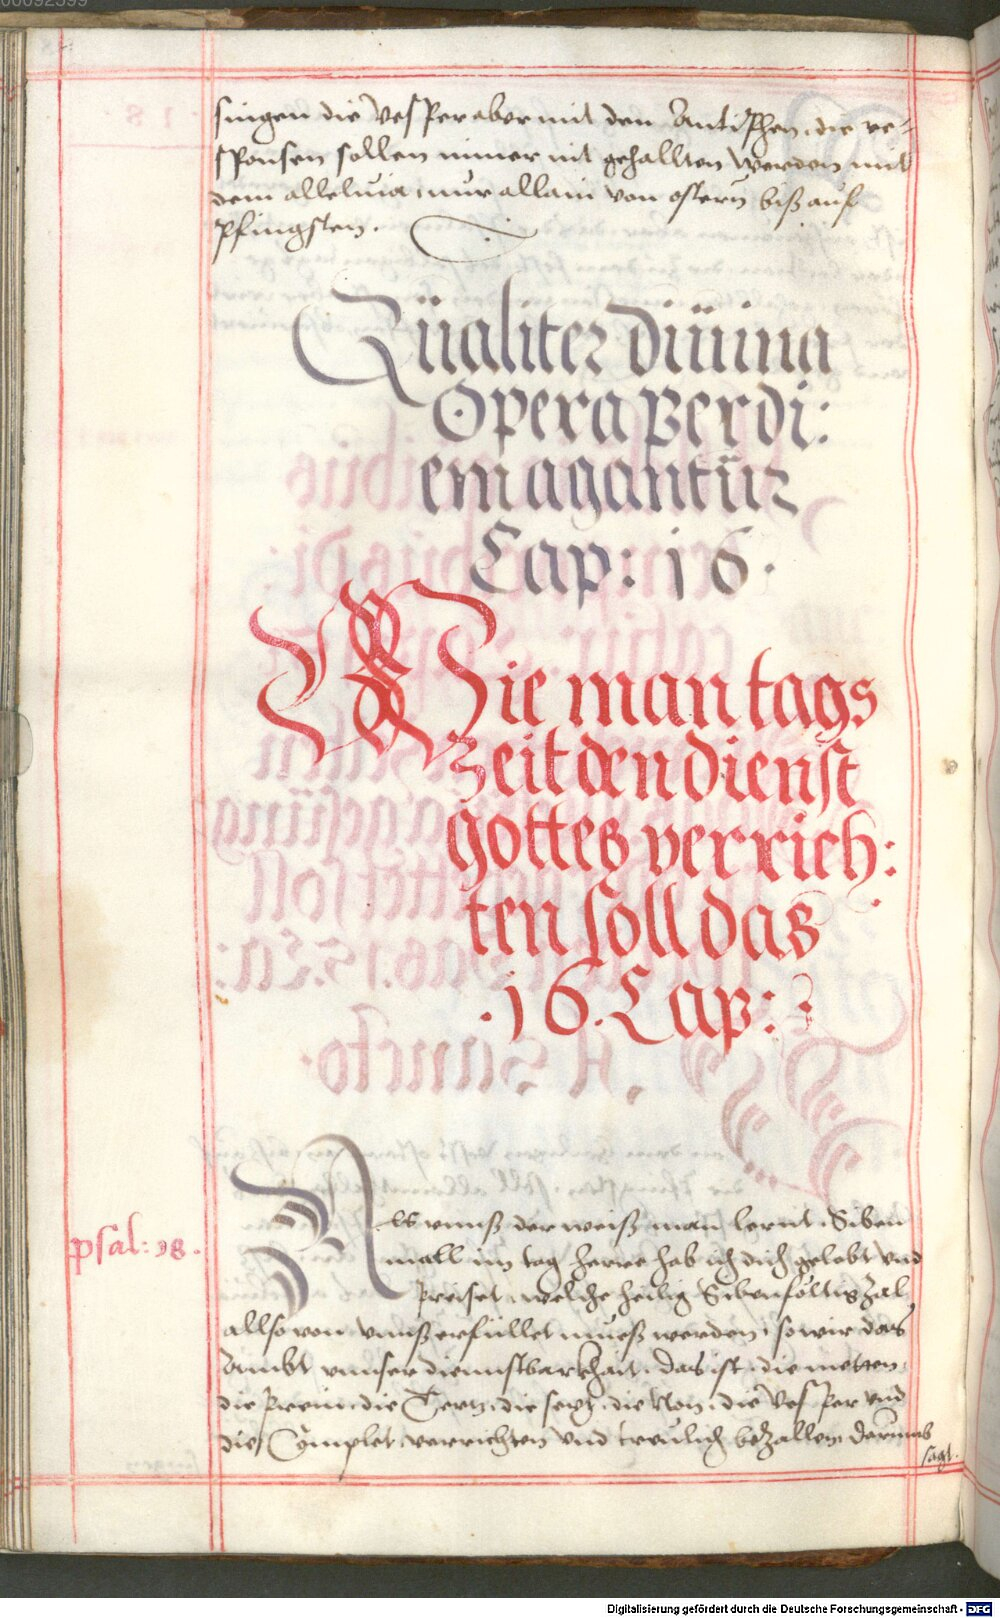 singen die Vesper aber mit den Antiphen, die re-
sponsen sollen nimer nit gehallten werden mit
dem alleluia, nur allain von ostern biß auf
Pfingsten.
Qüaliter diüina
Opera per di:
em agantür
Cap: 16.
Wie man tags
zeit den dienst
gottes verrich:
ten soll das
.16. Cap:
psal: 18.
Als vnnß der weiß man lernt. Siben
mall im tag herre hab ich dich gelobt vnd
Preiset, welche heilig Sibenföltig Zal
allso von vnnß erfüllet mueß werden, so wir das
Ambt vnnser diennstbarkhait, das ist, die metten,
die Preim, die Tertz, die sext, die Non, die Vesper vnd
die Complet, verrichten vnd treulich bezallen, darumb
sagt.
Digitalisierung gefördert durch die Deutsche Forschungsgemeinschaft - DFG